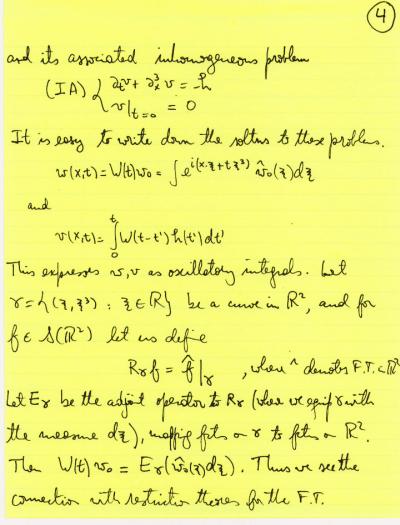 4
and its associated inhomogeneous problem
(IA) { ∂ₜv + ∂ₓ³v = h
v|ₜ₌₀ = 0
It is easy to write down the soltns to these problems.
w(x,t) = W(t)w₀ = ∫ e^{i(x·ξ + tξ³)} ŵ₀(ξ)dξ
and
v(x,t) = ∫₀ᵗ W(t-t')h(t')dt'
This expresses w, v as oscillatory integrals. Let
γ = {(ξ, ξ³) : ξ ∈ ℝ} be a curve in ℝ², and for
f ∈ S(ℝ²) let us define
R_γ f = f̂ |_γ , where ^ denotes F.T. in ℝ²
Let E_γ be the adjoint operator to R_γ (where we equip γ with
the measure dξ), mapping fcts on γ to fcts on ℝ².
Then W(t)w₀ = E_γ(ŵ₀(ξ)dξ). Thus we see the
connection with restriction theorems for the F.T.